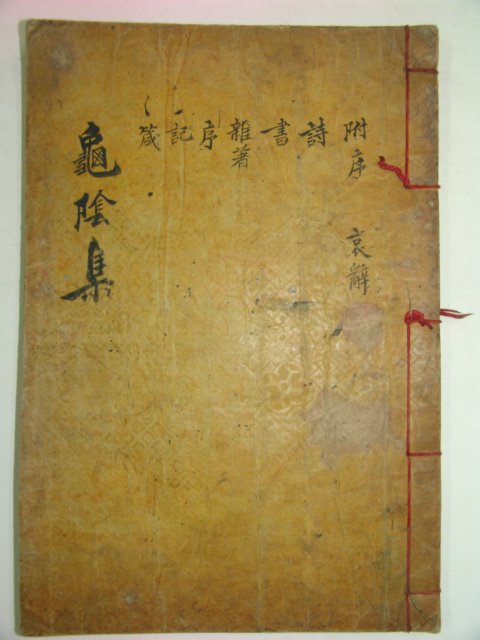 附序 哀辭
詩
書
雜著
序
記
箴
龜陰集